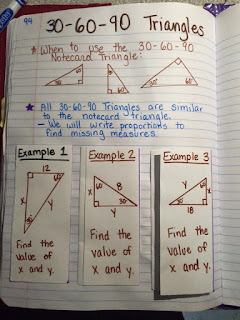 94
30-60-90 Triangles
* When to use the 30-60-90
Notecard Triangle:
30° 60° 60° 60° 30°
★ All 30-60-90 Triangles are similar
to the notecard triangle.
- We will write proportions to
find missing measures.
Example 1
12
60°
x
y
30°
Find the
value of
x and y.
Example 2
60°
x 8
30°
y
Find the
value of
x and y.
Example 3
y 60° x
30°
18
Find the
value of
x and y.